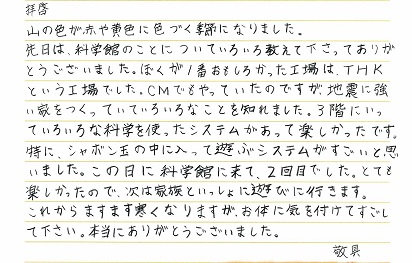 拝啓
山の色が赤や黄色に色づく季節になりました。
先日は、科学館のことについていろいろ教えて下さってありが
とうございました。ぼくが1番おもしろかった工場は、THK
という工場でした。CMでもやっていたのですが、地震に強
い家をつくっていていろいろなことを知れました。3階にいっ
ていろいろな科学を使ったシステムがあって楽しかったです。
特に、シャボン玉の中に入って遊ぶシステムがすごいと思
いました。この日に科学館に来て、2回目でした。とても
楽しかったので、次は家族といっしょに遊びに行きます。
これからますます寒くなりますが、お体に気を付けてすごし
て下さい。本当にありがとうございました。
敬具